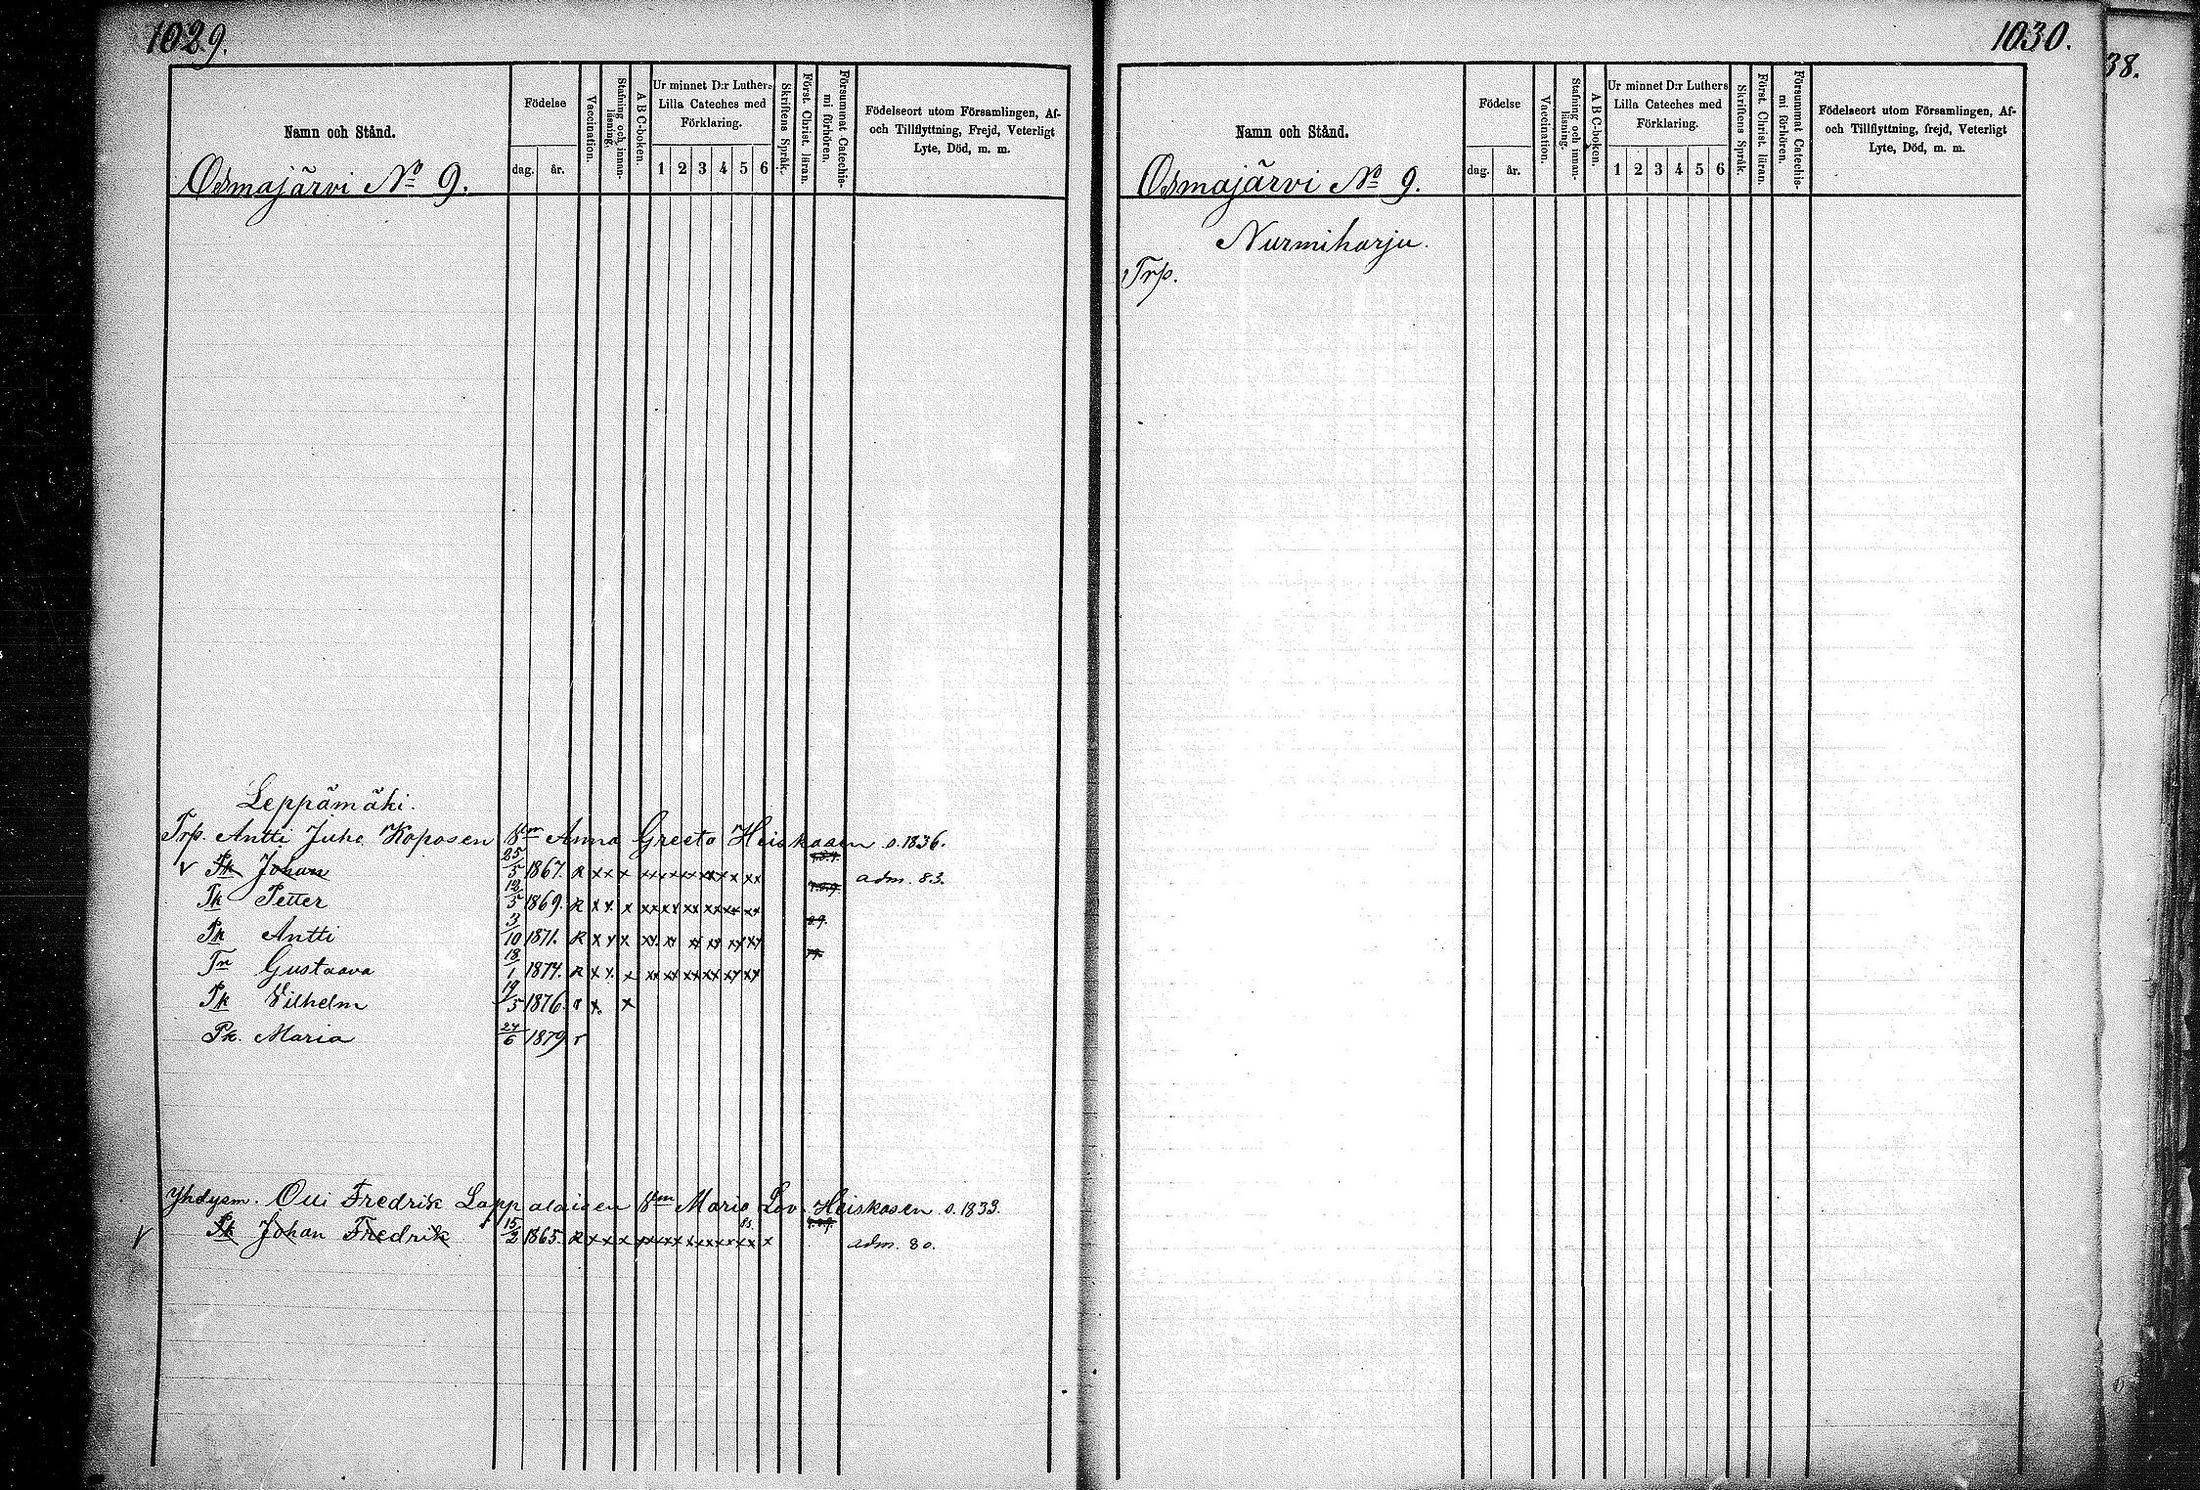 1029.
Namn och Stånd.
Födelse
dag. år.
Vaccination.
Stafning och innan-läsning.
A B C-boken.
Ur minnet D:r Luthers
Lilla Cateches med
Förklaring.
1 2 3 4 5 6
Skriftens Språk.
Först. Christ. läran.
Försummat Catechis-
mi förhören.
Födelseort utom Församlingen, Af-
och Tillflyttning, Frejd, Veterligt
Lyte, Död, m. m.
Osmajärvi No 9.
Leppämäki.
Trp. Antti Juho Koposen Vm Anna Greeta Heiskasen s. 1836.
Pk Johan 25/5 1867. R x x x xx xx xx xx x xx adm. 83.
Pk Petter 12/5 1869. R x x x xx xx xx xx xx xx
Pk Antti 3/10 1871. R x x x xx xx xx xx xx xx 89.
Tr Gustaava 18/1 1874. R x x x xx xx xx xx xx xx
Pk Vilhelm 19/5 1876. x x
Pk. Maria 24/6 1879 r
Yhdysm. Olli Fredrik Lappalaisen Vm Maria Lov. Heiskasen s. 1833.
Pk Johan Fredrik 15/2 1865. R x x x adm. 80.
1030.
Namn och Stånd.
Födelse
dag. år.
Vaccination.
Stafning och innan-läsning.
A B C-boken.
Ur minnet D:r Luthers
Lilla Cateches med
Förklaring.
1 2 3 4 5 6
Skriftens Språk.
Först. Christ. läran.
Försummat Catechis-
mi förhören.
Födelseort utom Församlingen, Af-
och Tillflyttning, frejd, Veterligt
Lyte, Död, m. m.
Osmajärvi No 9.
Nurmiharju.
Trp.
38.